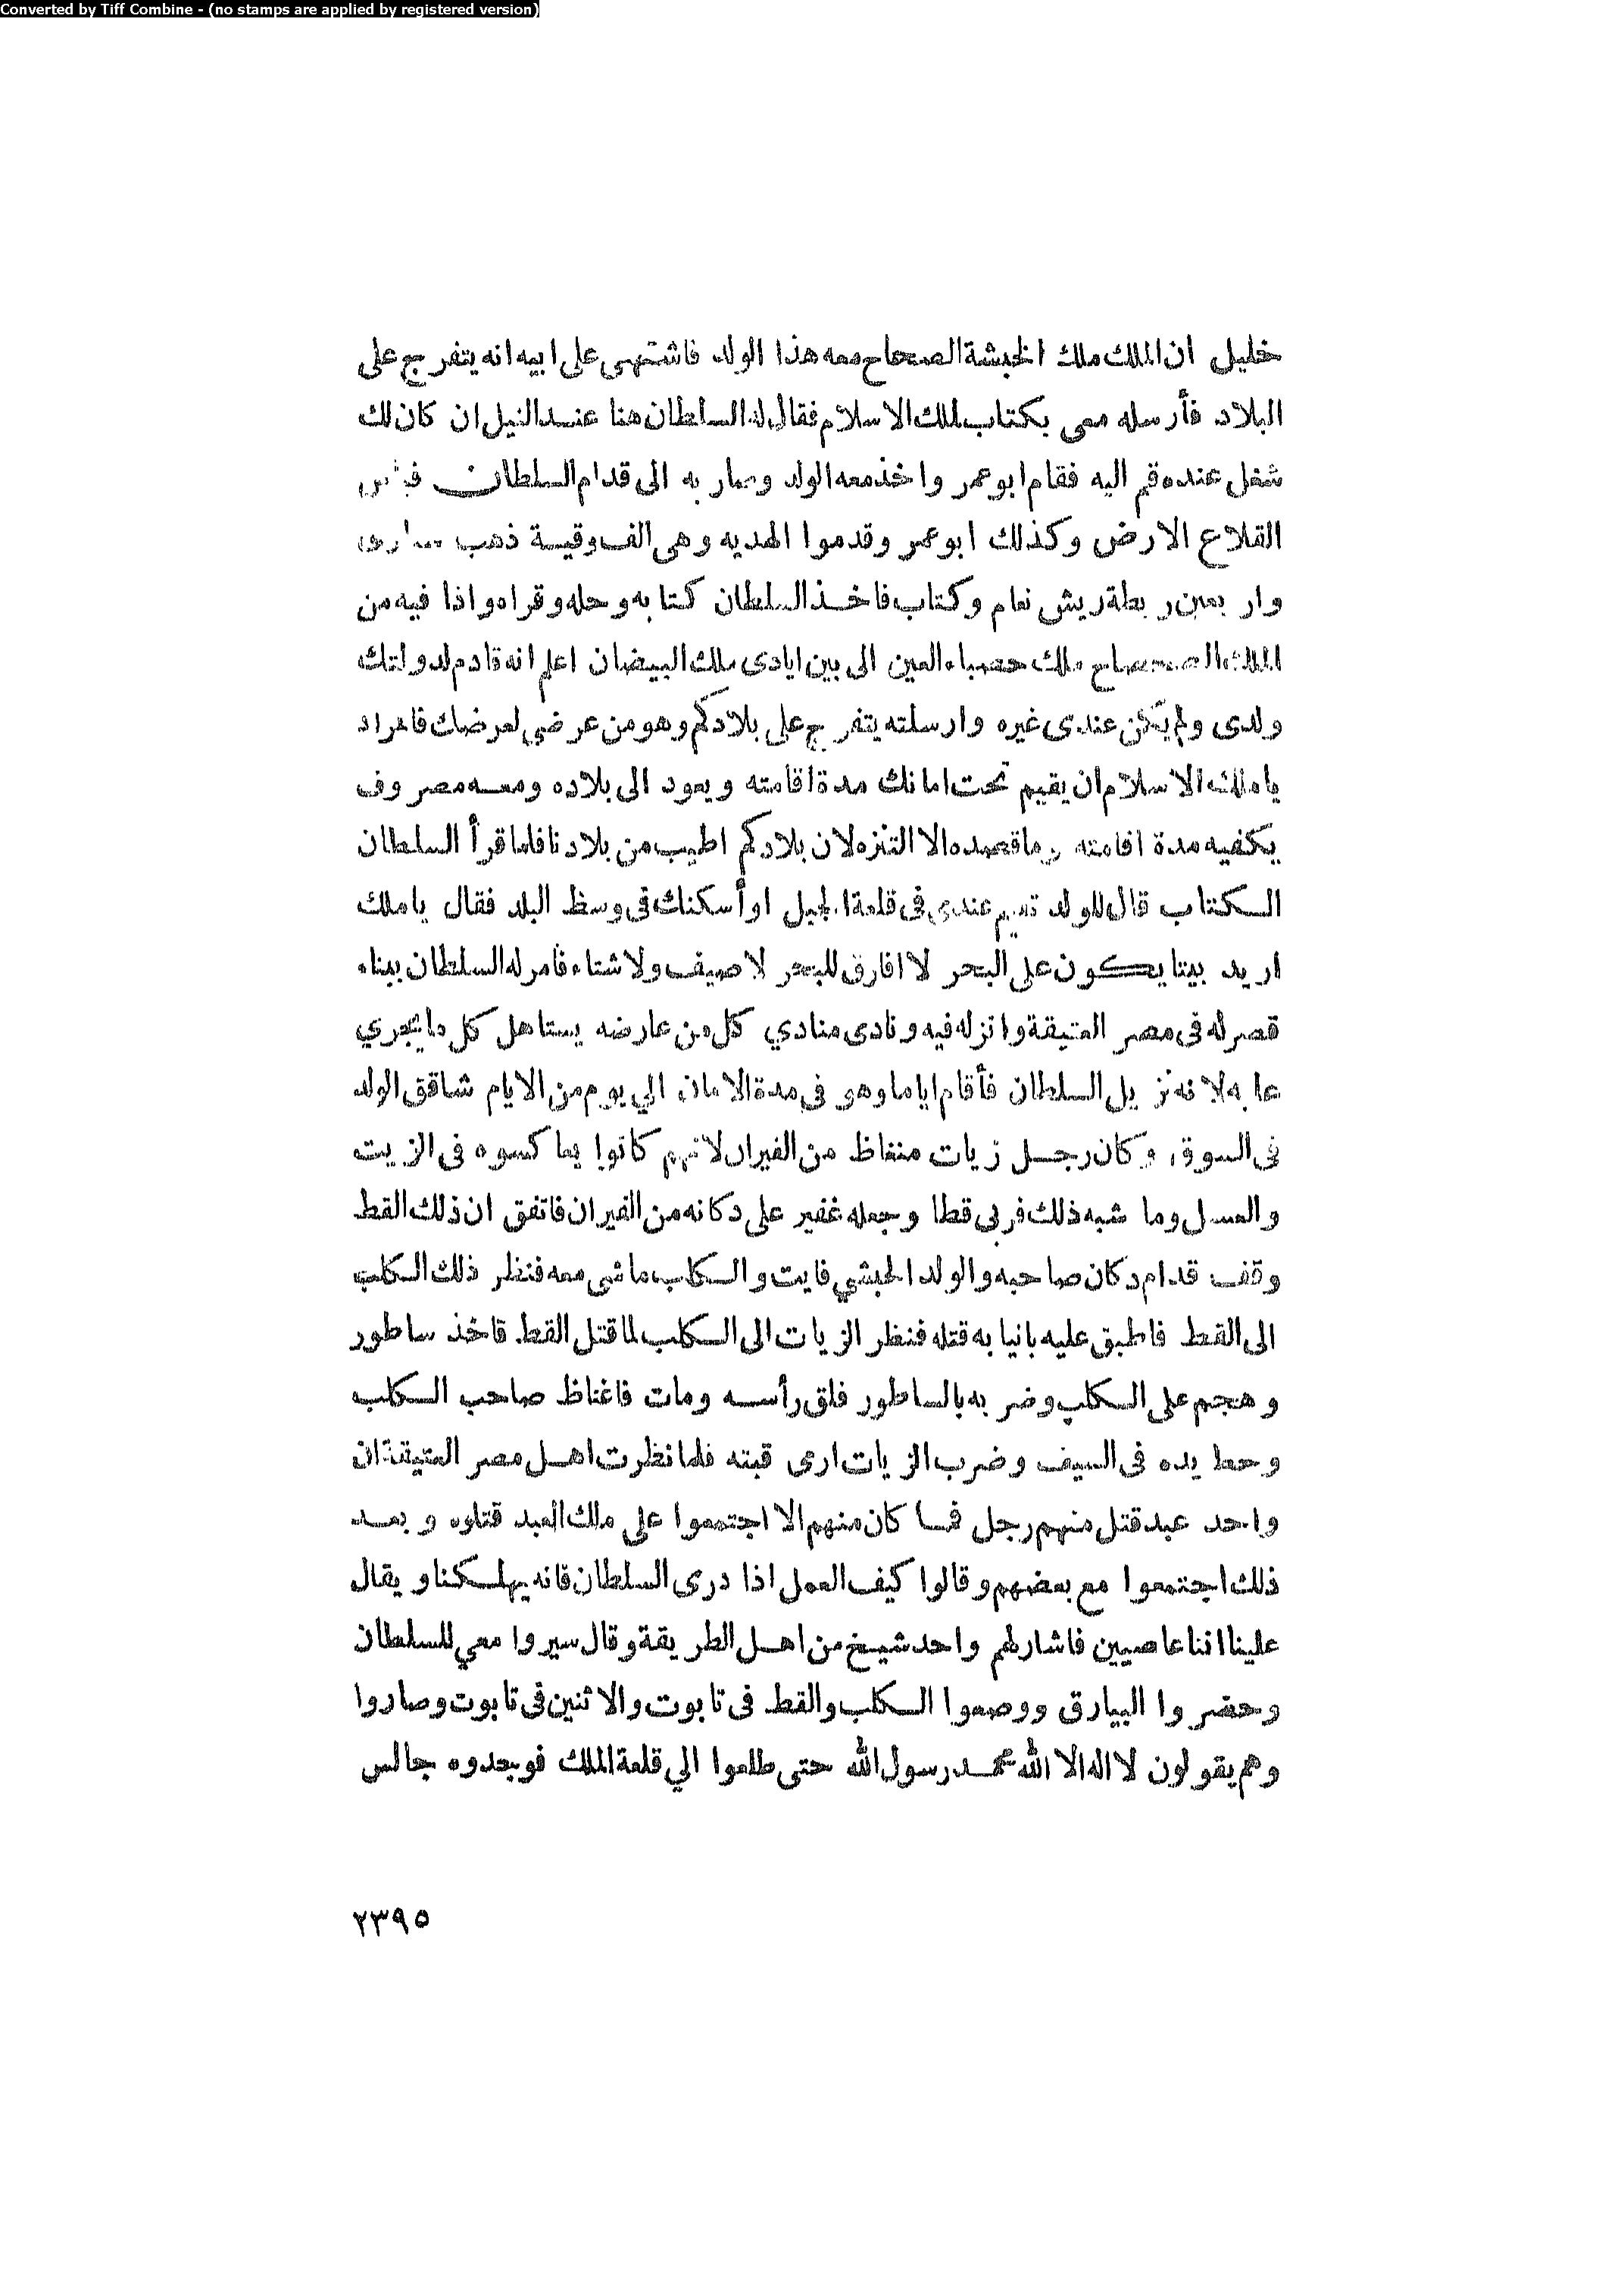 Converted by Tiff Combine - (no stamps are applied by registered version)
خليل ان الملك ملك الحبشة الصحاح معه هذا الولد فاشتهى على ابيه انه يتفرج على
البلاد فأرسله معى بكتاب لملك الاسلام فقال له السلطان هنا عند النيل ان كان لك
شغل عنده قم اليه فقام ابو عمر واخذ معه الولد وصار به الى قدام السلطان
القلاع الارض وكذلك ابو عمر وقدموا الهديه وهى الف وقية ذهب
واربعين ربطة ريش نعام وكتاب فاخذ السلطان كتابه وحله وقراه واذا فيه من
الملك ملك حصباء العين الى بين ايادى ملك البيضان اعلم انه قادم لدولتك
ولدى ولم يكن عندى غيره وارسلته يتفرج على بلادكم وهو من عرضي لعرضك فالمراد
يا ملك الاسلام ان يقيم تحت امانك مدة اقامته ويعود الى بلاده ومعه مصروف
يكفيه مدة اقامته وما قصده الا التنزه لان بلادكم اطيب من بلادنا فلما قرأ السلطان
الكتاب قال للولد تقيم عندى فى قلعة الجبل او أسكنك فى وسط البلد فقال يا ملك
اريد بيتا يكون على البحر لا افارق للبحر لا صيف ولا شتاء فامر له السلطان ببناء
قصر له فى مصر العتيقة وانزله فيه ونادى منادي كل من عارضه يستاهل كل ما يجري
عليه لانه نزيل السلطان فأقام اياما وهو فى مدة الامان الي يوم من الايام شاقق الولد
فى السوق وكان رجل زيات منغاظ من الفيران لانهم كانوا يعاكسوه فى الزيت
والعسل وما شبه ذلك فربى قطا وجعله غفير على دكانه من الفيران فاتفق ان ذلك القط
وقف قدام دكان صاحبه والولد الحبشي فايت والكلب ماشى معه فنظر ذلك الكلب
الى القط فاطبق عليه بانيابه قتله فنظر الزيات الى الكلب لما قتل القط فاخذ ساطور
وهجم على الكلب وضربه بالساطور فلق رأسه ومات فاغتاظ صاحب الكلب
وحط يده فى السيف وضرب الزيات ارمى قبته فلما نظرت اهل مصر العتيقة ان
واحد عبد قتل منهم رجل فما كان منهم الا اجتمعوا على ملك العبد قتلوه وبعد
ذلك اجتمعوا مع بعضهم وقالوا كيف العمل اذا درى السلطان فانه يهلكنا ويقال
علينا اننا عاصيين فاشار لهم واحد شيخ من اهل الطريقة وقال سيروا معي للسلطان
وحضروا البيارق ووضعوا الكلب والقط فى تابوت والاثنين فى تابوت وصاروا
وهم يقولون لا اله الا الله محمد رسول الله حتى طلعوا الي قلعة الملك فوجدوه جالس
٢٣٩٥